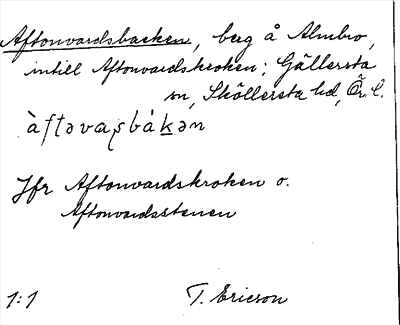 Aftonvardsbacken, berg å Almbro,
intill Aftonvardskroken; Gällersta
sn, Sköllersta hd, Ör. l.
àftəvaʂbákən
Jfr Aftonvardskroken o.
Aftonvardsstenen
1:1 T. Ericson